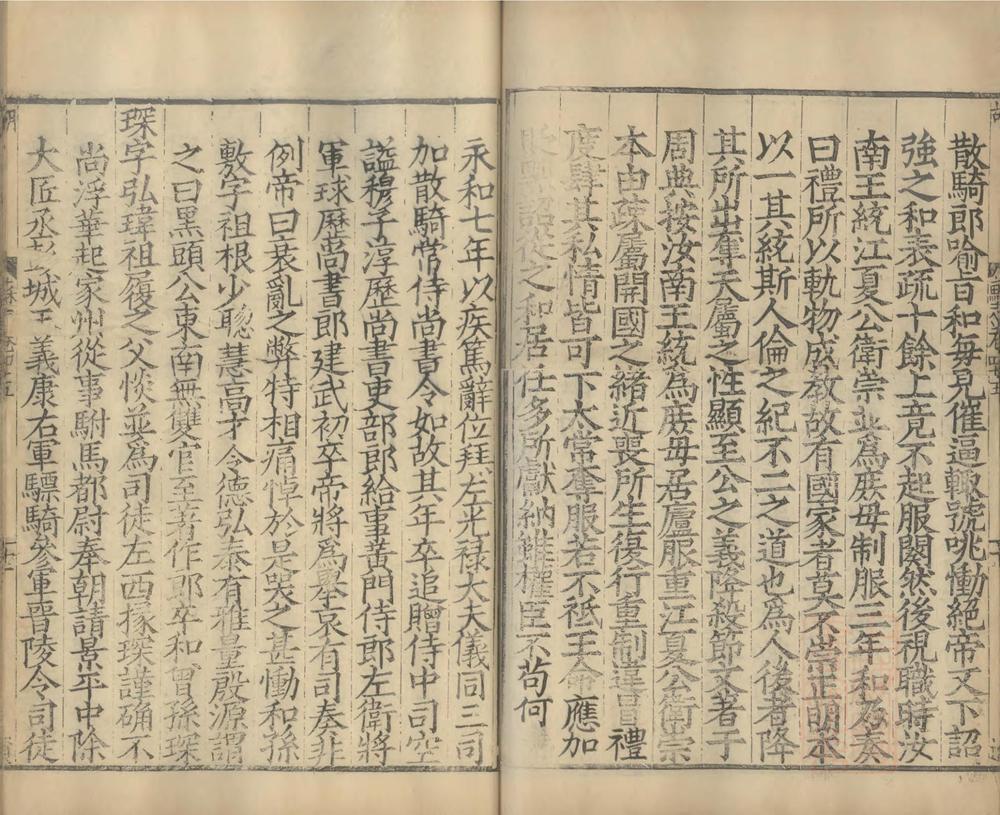 散騎郎喻旨和每見催逼輙號咷慟絕帝又下詔
強之和表疏十餘上竟不起服闋然後視職時汝
南王統江夏公衛崇並為庶母制服三年和乃奏
曰禮所以軌物成教故有國家者莫不崇正明本
以一其統斯人倫之紀不二之道也為人後者降
其所出奪天屬之性顯至公之義降殺節文者于
周典按汝南王統為庶母居廬服重江夏公衛崇
本由疏屬開國之緒近喪所生復行重制違冒禮
度肆其私情皆可下太常奪服若不祗王命應加
貶黜詔從之和居任多所獻納雖權臣不苟何
永和七年以疾篤辭位拜左光祿大夫儀同三司
加散騎常侍尚書令如故其年卒追贈侍中司空
謚穆子淳歷尚書吏部郎給事黃門侍郎左衛將
軍球歷尚書郎建武初卒帝將為舉哀有司奏非
例帝曰衰亂之弊特相痛悼於是哭之甚慟和孫
敷字祖根少聰慧高才令德弘泰有雅量殷源謂
之曰黑頭公東南無雙官至著作郎卒和曾孫琛
琛字弘瑋祖履之父惔並為司徒左西掾琛謹确不
尚浮華起家州從事駙馬都尉奉朝請景平中除
大匠丞城王義康右軍驃騎參軍晉陵令司徒